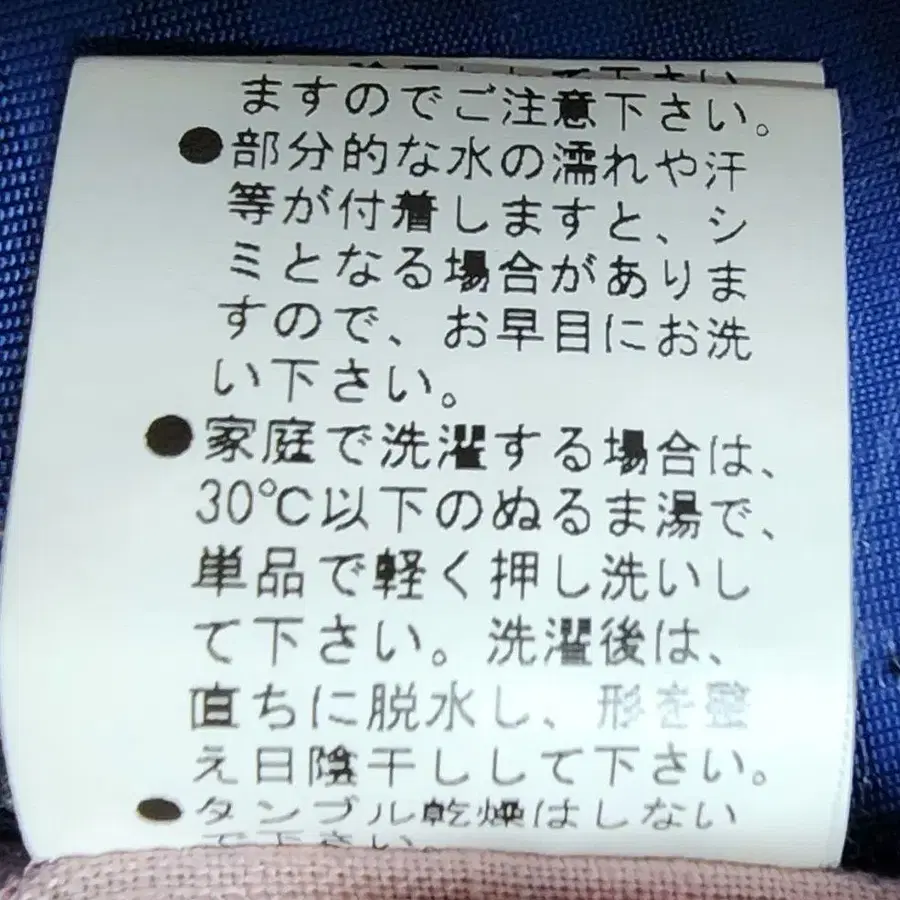 ますのでご注意下さい。
●部分的な水の濡れや汗
等が付着しますと、シ
ミとなる場合がありま
すので、お早目にお洗
い下さい。
●家庭で洗濯する場合は、
30℃以下のぬるま湯で、
単品で軽く押し洗いし
て下さい。洗濯後は、
直ちに脱水し、形を整
え日陰干しして下さい。
●タンブル乾燥はしない
で下さい。